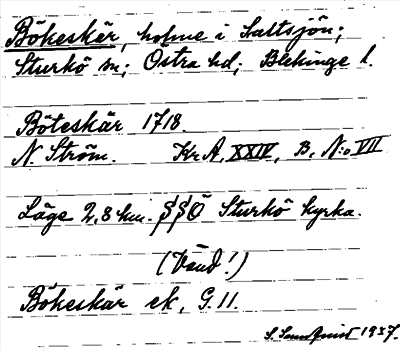 Bökeskär, holme i Saltsjön;
Sturkö sn; Östra hd; Blekinge l.
Böteskär 1718.
N. Ström. Kr. A, XXIV, B. N:o VII
Läge 2,8 km. SSÖ Sturkö kyrka.
(Vänd!)
Bökeskär ek. G. 11.
S. Sundquist 1937.